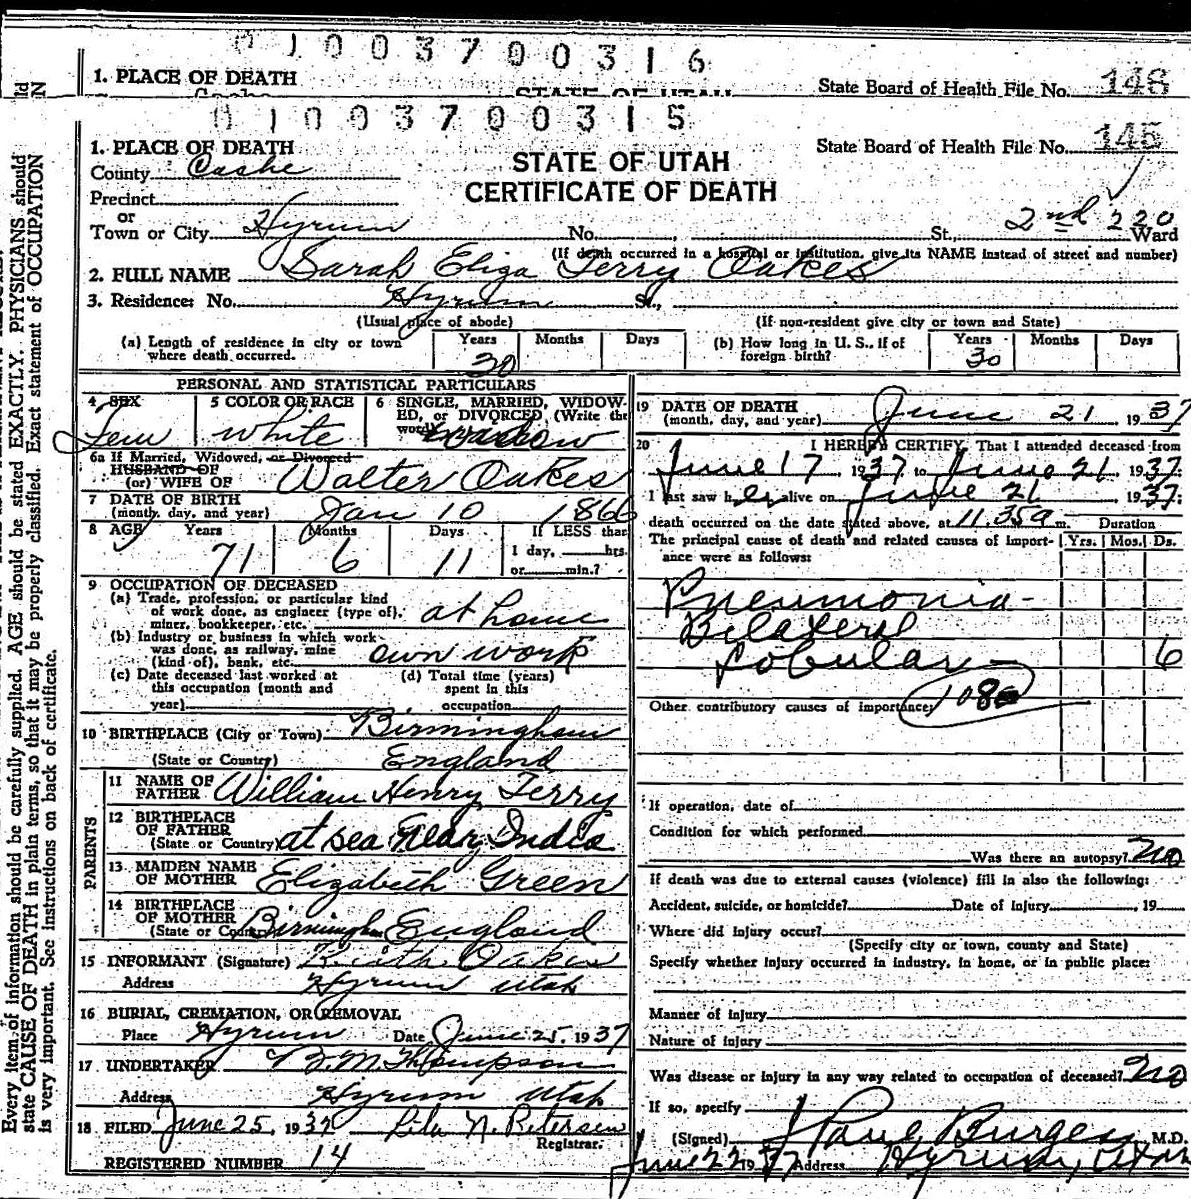 0100370 0316
1. PLACE OF DEATH
State Board of Health File No. 146
0100370 0315
1. PLACE OF DEATH
State Board of Health File No. 145
STATE OF UTAH
County Cache
CERTIFICATE OF DEATH
Precinct
or
Town or City Hyrum No. , St., 2nd 220 Ward
(If death occurred in a hospital or institution, give its NAME instead of street and number)
2. FULL NAME Sarah Eliza Terry Oakes
3. Residence: No. Hyrum St.,
(Usual place of abode) (If non-resident give city or town and State)
(a) Length of residence in city or town where death occurred. Years 30 Months Days
(b) How long in U. S., if of foreign birth? Years 30 Months Days
PERSONAL AND STATISTICAL PARTICULARS
4 SEX Fem
5 COLOR OR RACE white
6 SINGLE, MARRIED, WIDOWED, or DIVORCED (Write the word) widow
6a If Married, Widowed, or Divorced
HUSBAND OF
(or) WIFE OF Walter Oakes
7 DATE OF BIRTH
(month, day, and year) Jan 10 1866
8 AGE Years 71 Months 6 Days 11 If LESS than
1 day, hrs.
or min.?
9 OCCUPATION OF DECEASED
(a) Trade, profession, or particular kind
of work done, as engineer (type of),
miner, bookkeeper, etc. at home
(b) Industry or business in which work
was done, as railway, mine
(kind of), bank, etc. own work
(c) Date deceased last worked at
this occupation (month and
year)
(d) Total time (years)
spent in this
occupation
10 BIRTHPLACE (City or Town) Birmingham
(State or Country) England
PARENTS
11 NAME OF
FATHER William Henry Terry
12 BIRTHPLACE
OF FATHER
(State or Country) at sea near India
13 MAIDEN NAME
OF MOTHER Elizabeth Green
14 BIRTHPLACE
OF MOTHER
(State or Country) Birmingham England
15 INFORMANT (Signature) Keith Oakes
Address Hyrum Utah
16 BURIAL, CREMATION, OR REMOVAL
Place Hyrum Date June 25, 1937
17 UNDERTAKER B. M. Thompson
Address Hyrum Utah
18 FILED June 25, 1937 Lila N. Petersen
Registrar.
REGISTERED NUMBER 14
19 DATE OF DEATH
(month, day, and year) June 21 1937
20 I HEREBY CERTIFY, That I attended deceased from
June 17 1937 to June 21 1937:
I last saw her alive on June 21 1937:
death occurred on the date stated above, at 11.35a m. Duration
The principal cause of death and related causes of importance were as follows: Yrs. Mos. Ds.
Pneumonia -
Bilateral
Lobular - 6
108
Other contributory causes of importance:
If operation, date of
Condition for which performed
Was there an autopsy? no
If death was due to external causes (violence) fill in also the following:
Accident, suicide, or homicide? Date of injury , 19
Where did injury occur?
(Specify city or town, county and State)
Specify whether injury occurred in industry, in home, or in public place:
Manner of injury
Nature of injury
Was disease or injury in any way related to occupation of deceased? no
If so, specify
(Signed) J Paul Burgess, M.D.
June 22 1937 Address Hyrum, Utah
Every item of information should be carefully supplied. AGE should be stated EXACTLY. PHYSICIANS should
state CAUSE OF DEATH in plain terms, so that it may be properly classified. Exact statement of OCCUPATION
is very important. See instructions on back of certificate.